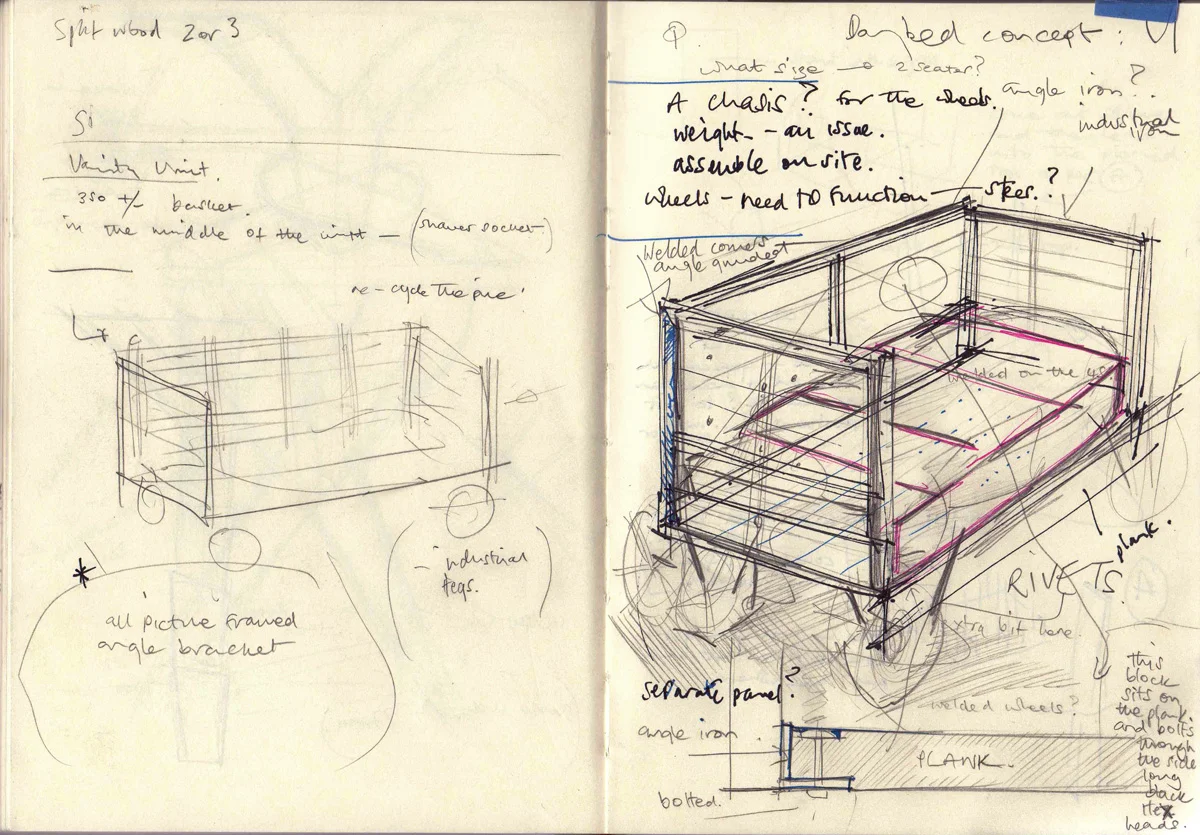 Split wood 2 or 3
Vanity Unit.
350 +/- basket.
in the middle of the unit — (shaver socket)
re-cycle the pine!
- industrial
* all picture framed
angle bracket
Daybed concept: VI
what size → 2 seater?
A chasis? for the wheels.
angle iron?
industrial
iron
weight - an issue.
assemble on site.
wheels - need to function — sizes?
welded corners
angle
welded on the
plank.
RIVETS.
extra bit here.
separate panel?
welded wheels?
angle iron.
PLANK.
bolted.
this
block
sits on
the plank.
and bolts
through
the side
long
black
Hex
heads.